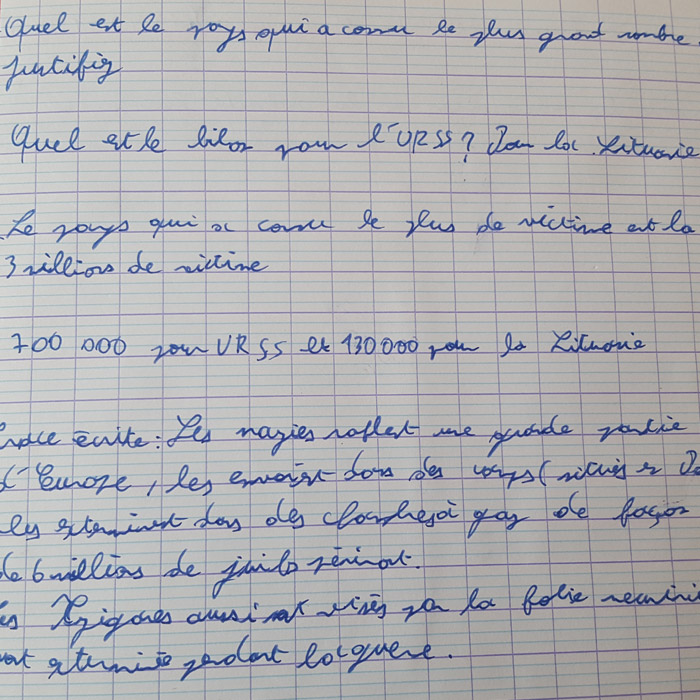 Quel est le pays qui a connu le plus grand nombre
Justifiez
Quel est le bilan pour l'URSS? Pour la Lituanie
Le pays qui a connu le plus de victime est la
3 millions de victine
700 000 pour URSS et 130 000 pour la Lituanie
écrite: Les nazies raflent une grande partie
d'Europe, les envoient dans des camps (situés en
les exterminent dans des chambres à gaz de façon
de 6 millions de juifs périront.
Tziganes aussi sont visés par la folie
exterminée pendant la guerre.